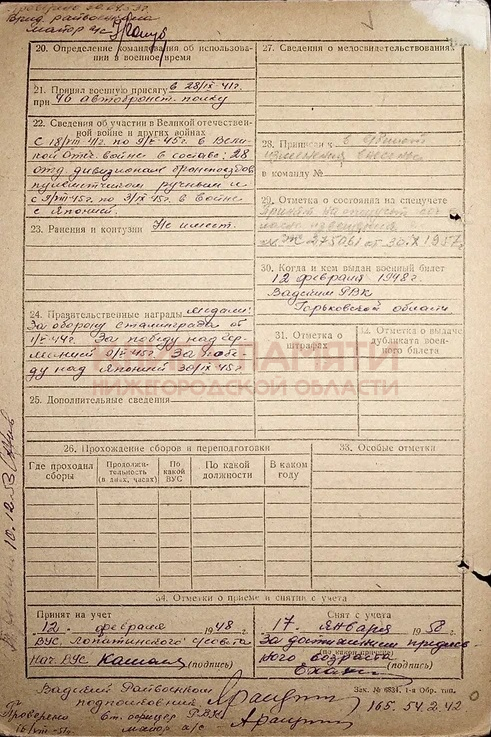 Врид. райвоенкома
майор а/с
20. Определение командования об использова-
нии в военное время
21. Принял военную присягу в 28/IX-41г.
при 46 автобронет. полку
22. Сведения об участии в Великой отечествен-
ной войне и других войнах
с 18/VII-41г. по 9/V-45г. в Вели-
кой Отеч. войне в составе: 28
отд. дивизиона бронепоездов
пулеметчиком ручным и
с 9/VIII-45г. по 3/IX-45г. в войне
с Японией.
23. Ранения и контузии Не имеет.
24. Правительственные награды медали:
За оборону Сталинграда от
1/V-44г. За победу над Гер-
манией 9/V-45г. За побе-
ду над Японией 30/IX-45г.
25. Дополнительные сведения
27. Сведения о медосвидетельствовании
28. Приписан к
изменения
в команду №
29. Отметка о состоянии на спецучете
Принят на спецучет
№ 275061 от 30.IX 1957г.
30. Когда и кем выдан военный билет
12 февраля 1948г.
Вадским РВК
Горьковской области
31. Отметка о
штрафах
32. Отметка о выдаче
дубликата воен-
ного билета
ПАМЯТИ
НИЖЕГОРОДСКОЙ ОБЛАСТИ
26. Прохождение сборов и переподготовки
33. Особые отметки
Где проходил
сборы
Продолжи-
тельность
(в днях, часах)
По
какой
ВУС
По какой
должности
В каком
году
34. Отметки о приеме и снятии с учета
Принят на учет
12 февраля 1948 г.
ВУС Лопатинского с/совета
Нач. ВУС
(подпись)
Снят с учета
17. января 1958 г.
За достижением предель-
(по какой причине)
ного возраста
(подпись)
Зак. № 6834. 1-я Обр. тип.
Вадский Райвоенком
подполковник
165. 54. 2. 42
Проверено Ст. офицер РВК
майор а/с
16/VIII-51г.
10.12.53